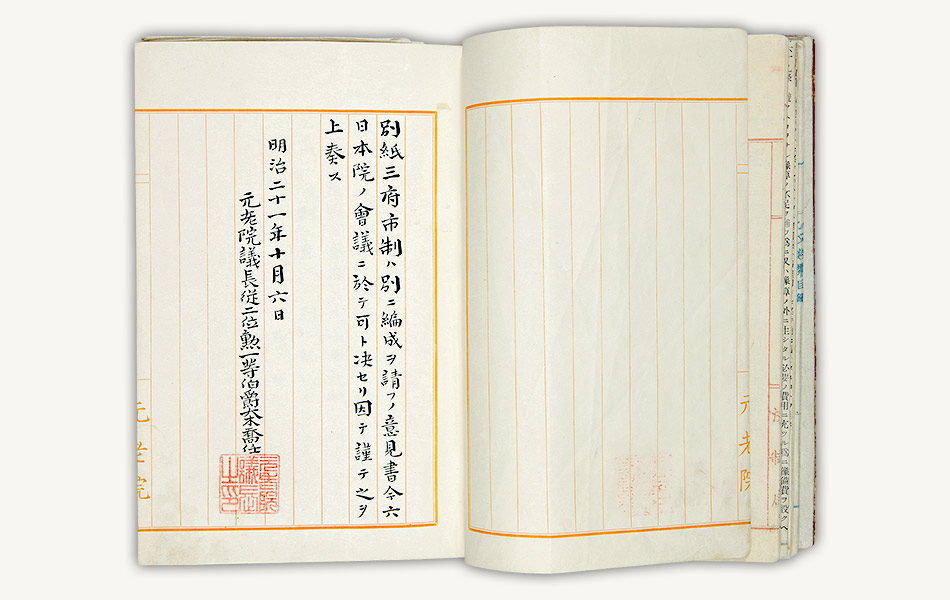 別紙三府市制ハ別ニ編成ヲ請フノ意見書今六
日本院ノ會議ニ於テ可ト决セリ因テ謹テ之ヲ
上奏ス
明治二十一年十月六日
元老院議長従二位勲一等伯爵大木喬任
元老院議長之印
元老院
元老院